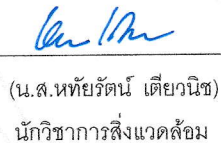 (น.ส.หทัยรัตน์ เตียวนิช)
นักวิชาการสิ่งแวดล้อม